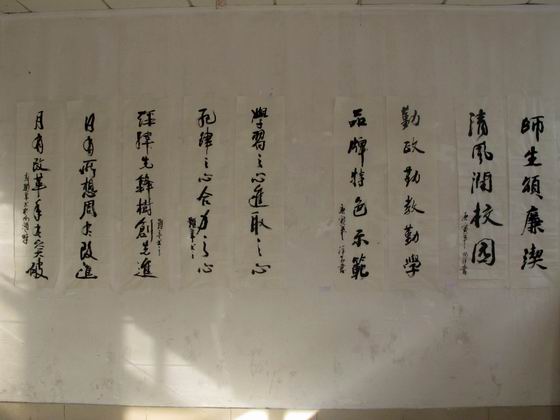 師生頌廉潔
清風潤校園
勤政勤教勤學
品牌特色示範
學習之心進取之心
紀律之心合力之心
先鋒樹創先進
日有所想周有改進
月有改革年有突破